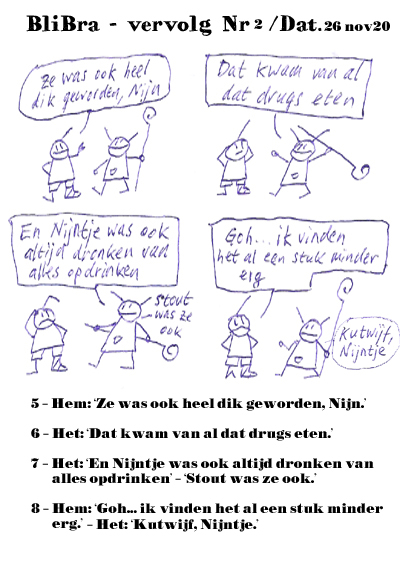 BliBra - vervolg Nr 2 /Dat. 26 nov20
Ze was ook heel
dik geworden, Nijn
Dat kwam van al
dat drugs eten
En Nijntje was ook
altijd dronken van
alles opdrinken
stout
was ze
ook
Goh... ik vinden
het al een stuk minder
erg
Kutwijf,
Nijntje
5 - Hem: 'Ze was ook heel dik geworden, Nijn.'
6 - Het: 'Dat kwam van al dat drugs eten.'
7 - Het: 'En Nijntje was ook altijd dronken van
alles opdrinken' - 'Stout was ze ook.'
8 - Hem: 'Goh... ik vinden het al een stuk minder
erg.' - Het: 'Kutwijf, Nijntje.'